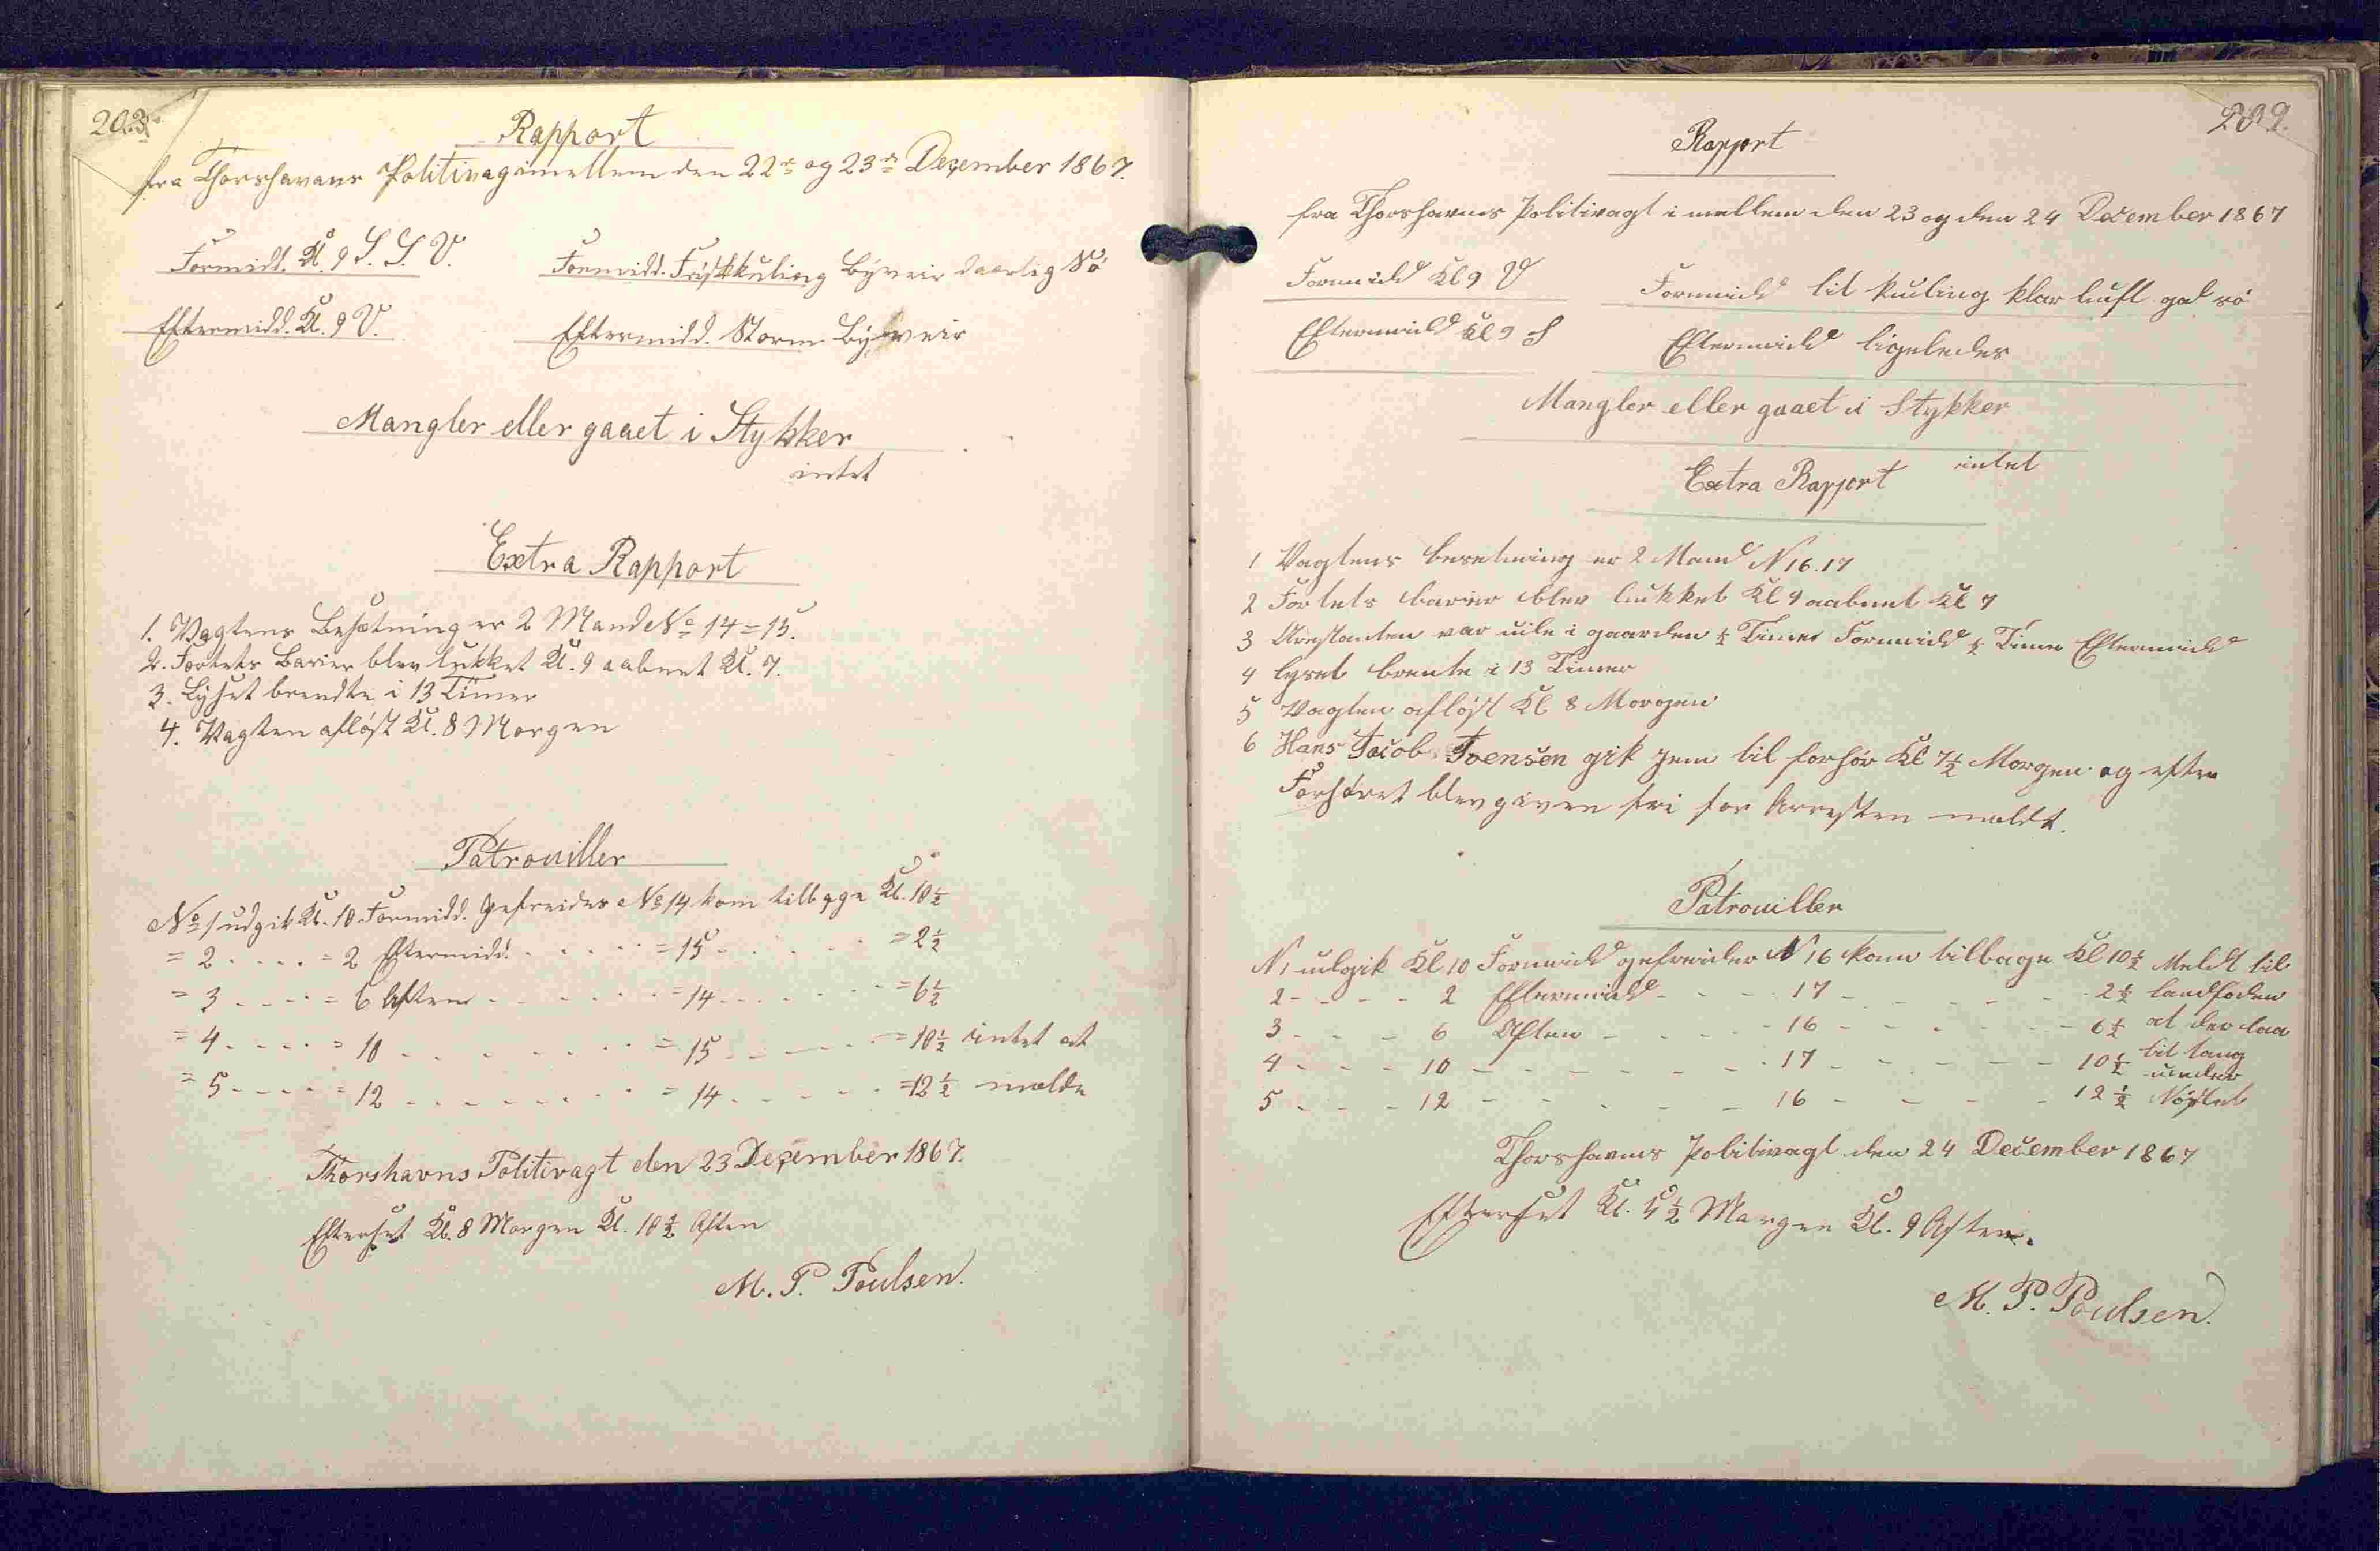 203.
Rapport
fra Thorshavns Politivagt imellem den 22de og 23de Dezember 1867.
Formidd. Kl. 9 S. S. V.
Formidd. Frisk kuling Byveir daarlig Sö
Eftermidd. Kl. 9 V.
Eftermidd. Storm Byveir
Mangler eller gaaet i Stykker
intet
Extra Rapport
1. Vagtens Besætning er 2 Mand No 14 = 15.
2. Fortets Barier blev lukket Kl. 9 aabnet Kl. 7.
3. Lyset brendte i 13 Timer
4. Vagten aflöst Kl. 8 Morgen
Patrouiller
No 1 udgik Kl. 10 Formidd. Gefreider No 14 kom tilbage Kl. 10 1/2
= 2 . . . . = 2 Eftermidd. . . . . . = 15 . . . . . . = 2 1/2
= 3 . . . . = 6 Aften . . . . . . = 14 . . . . . . = 6 1/2
= 4 . . . . = 10 . . . . . . . . = 15 . . . . . . = 10 1/2 intet at
= 5 . . . . = 12 . . . . . . . . = 14 . . . . . . = 12 1/2 melde
Thorshavns Politivagt den 23 Dezember 1867.
Efterset Kl. 8 Morgen Kl. 10 1/2 Aften
M. P. Poulsen.
209.
Rapport
fra Thorshavns Politivagt i mellem den 23 og den 24 December 1867
Formidd Kl 9 V
Formidd lit kuling klar luft god sö
Eftermidd Kl 9 S
Eftermidd ligeledes
Mangler eller gaaet i Stykker
intet
Extra Rapport
1 Vagtens besetning er 2 Mand N 16. 17
2 Fortets barier blev lukket Kl 9 aabnet Kl 7
3 Arestanten var ude i gaarden 1/2 Timer Formidd 1/2 Time Eftermidd
4 lyset brente i 13 Timer
5 Vagten aflöst Kl 8 Morgen
6 Hans Jacob gik hem til forhör Kl 7 1/2 Morgen og efter
Forhöret blev given fri for Arresten meldt.
Patrouiller
N 1 udgik Kl 10 Formidd gefreider N 16 kom tilbage Kl 10 1/2 Meldt til
2 - - - - 2 Eftermidd - - - - 17 - - - - - - 2 1/2 landfoden
3 - - - - 6 Aften - - - - 16 - - - - - - 6 1/2 at der laa
4 - - - - 10 - - - - - - - 17 - - - - - - 10 1/2 lit tang
under
5 - - - - 12 - - - - - - 16 - - - - - 12 1/2 Nöstet
Thorshavns Politivagt den 24 December 1867
Efterset Kl. 4 1/2 Morgen Kl. 9 Aften.
M. P. Poulsen.